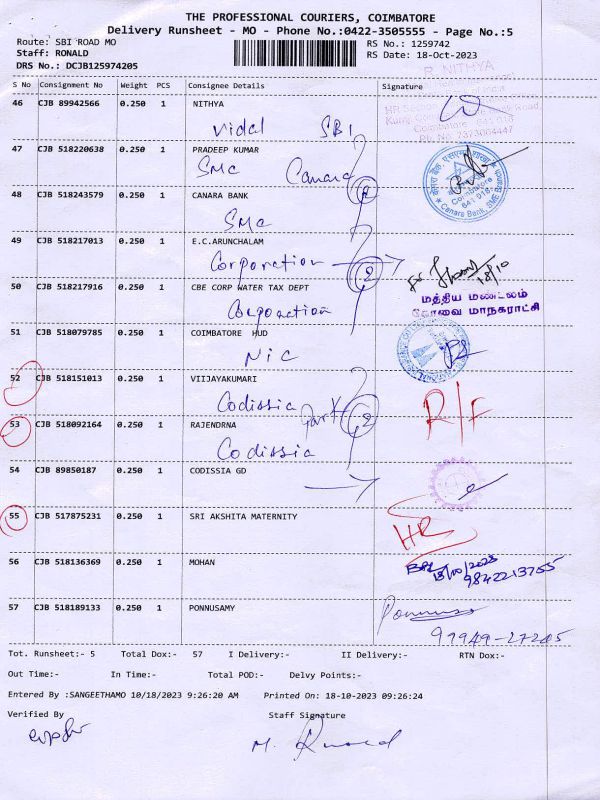 THE PROFESSIONAL COURIERS, COIMBATORE
Delivery Runsheet - MO - Phone No.:0422-3505555 - Page No.:5
Route: SBI ROAD MO RS No.: 1259742
Staff: RONALD RS Date: 18-Oct-2023
DRS No.: DCJB125974205
S No Consignment No Weight PCS Consignee Details Signature
R. NITHYA
46 CJB 89942566 0.250 1 NITHYA
Vidal SBI
Coimbatore - 641 018
Ph. No. 7373064447
47 CJB 518220638 0.250 1 PRADEEP KUMAR
SMC Canara
Coimbatore
641 018
Canara Bank, SME
48 CJB 518243579 0.250 1 CANARA BANK
2
SMC
49 CJB 518217013 0.250 1 E.C.ARUNCHALAM
Corporation 2
18/10
50 CJB 518217916 0.250 1 CBE CORP WATER TAX DEPT
மத்திய மண்டலம்
கோவை மாநகராட்சி
Corporation
51 CJB 518079785 0.250 1 COIMBATORE HUD
NIC
52 CJB 518151013 0.250 1 VIIJAYAKUMARI
Codissia Park 2
R/F
53 CJB 518092164 0.250 1 RAJENDRNA
Codissia
54 CJB 89850187 0.250 1 CODISSIA GD
55 CJB 517875231 0.250 1 SRI AKSHITA MATERNITY
56 CJB 518136369 0.250 1 MOHAN
18/10/2023
9842213755
57 CJB 518189133 0.250 1 PONNUSAMY
Tot. Runsheet:- 5 Total Dox:- 57 I Delivery:- II Delivery:- RTN Dox:-
Out Time:- In Time:- Total POD:- Delvy Points:-
Entered By :SANGEETHAMO 10/18/2023 9:26:20 AM Printed On: 18-10-2023 09:26:24
Verified By Staff Signature